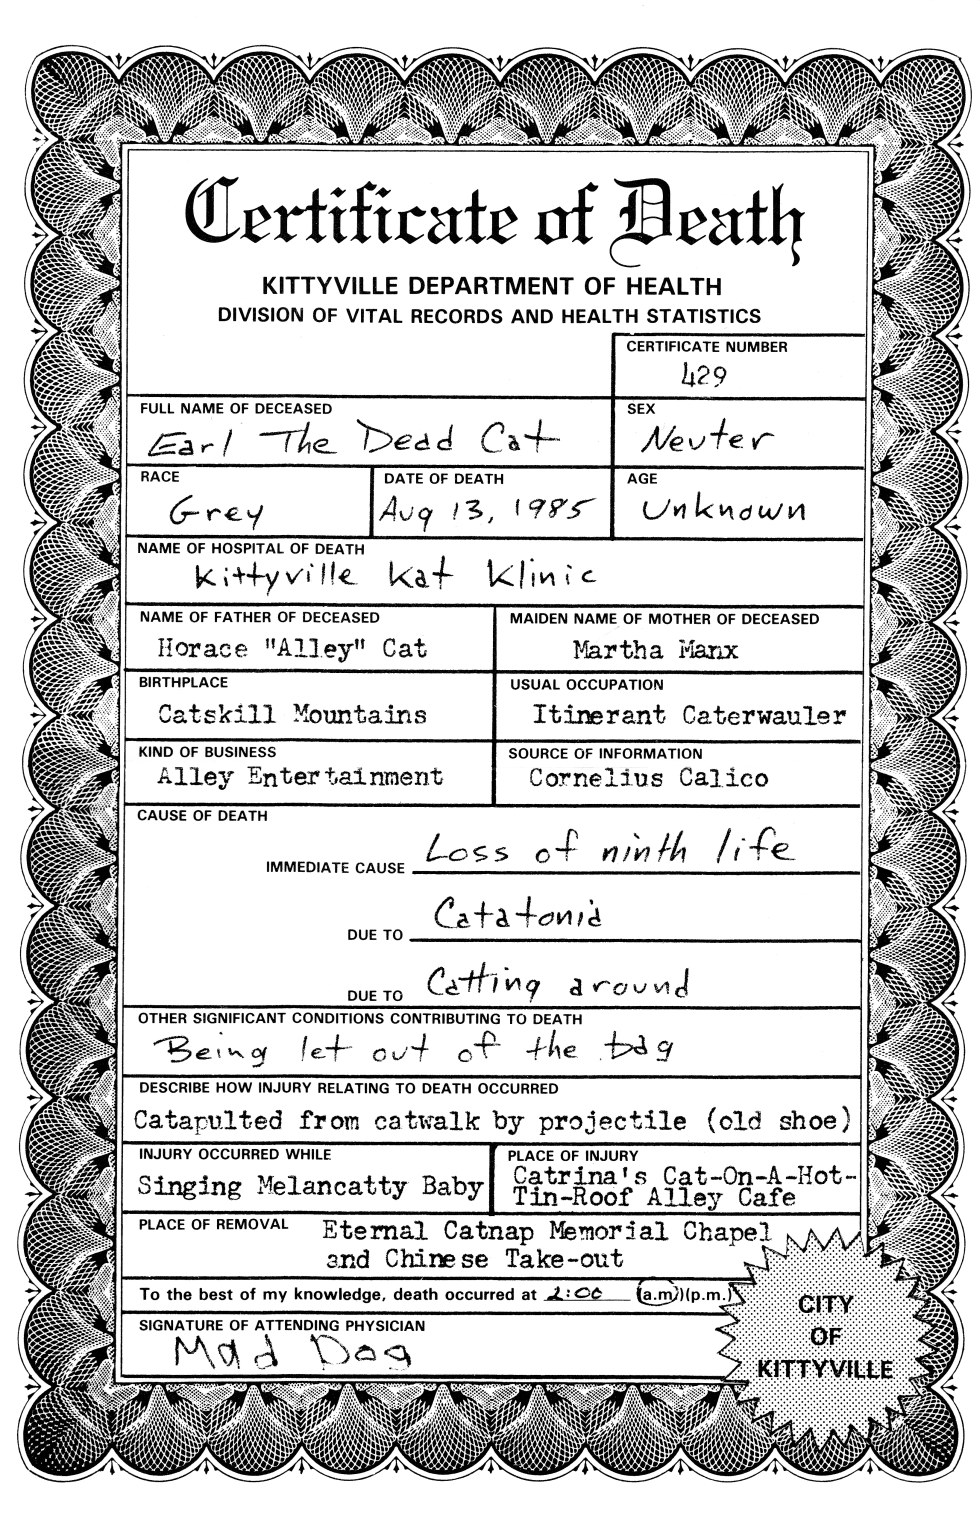 Certificate of Death
KITTYVILLE DEPARTMENT OF HEALTH
DIVISION OF VITAL RECORDS AND HEALTH STATISTICS
CERTIFICATE NUMBER
429
FULL NAME OF DECEASED
Earl The Dead Cat
SEX
Neuter
RACE
Grey
DATE OF DEATH
Aug 13, 1985
AGE
Unknown
NAME OF HOSPITAL OF DEATH
Kittyville Kat Klinic
NAME OF FATHER OF DECEASED
Horace "Alley" Cat
MAIDEN NAME OF MOTHER OF DECEASED
Martha Manx
BIRTHPLACE
Catskill Mountains
USUAL OCCUPATION
Itinerant Caterwauler
KIND OF BUSINESS
Alley Entertainment
SOURCE OF INFORMATION
Cornelius Calico
CAUSE OF DEATH
IMMEDIATE CAUSE Loss of ninth life
DUE TO Catatonia
DUE TO Catting around
OTHER SIGNIFICANT CONDITIONS CONTRIBUTING TO DEATH
Being let out of the bag
DESCRIBE HOW INJURY RELATING TO DEATH OCCURRED
Catapulted from catwalk by projectile (old shoe)
INJURY OCCURRED WHILE
Singing Melancatty Baby
PLACE OF INJURY
Catrina's Cat-On-A-Hot-
Tin-Roof Alley Cafe
PLACE OF REMOVAL Eternal Catnap Memorial Chapel
and Chinese Take-out
To the best of my knowledge, death occurred at 2:00 (a.m.)(p.m.)
SIGNATURE OF ATTENDING PHYSICIAN
Mad Dog
CITY
OF
KITTYVILLE